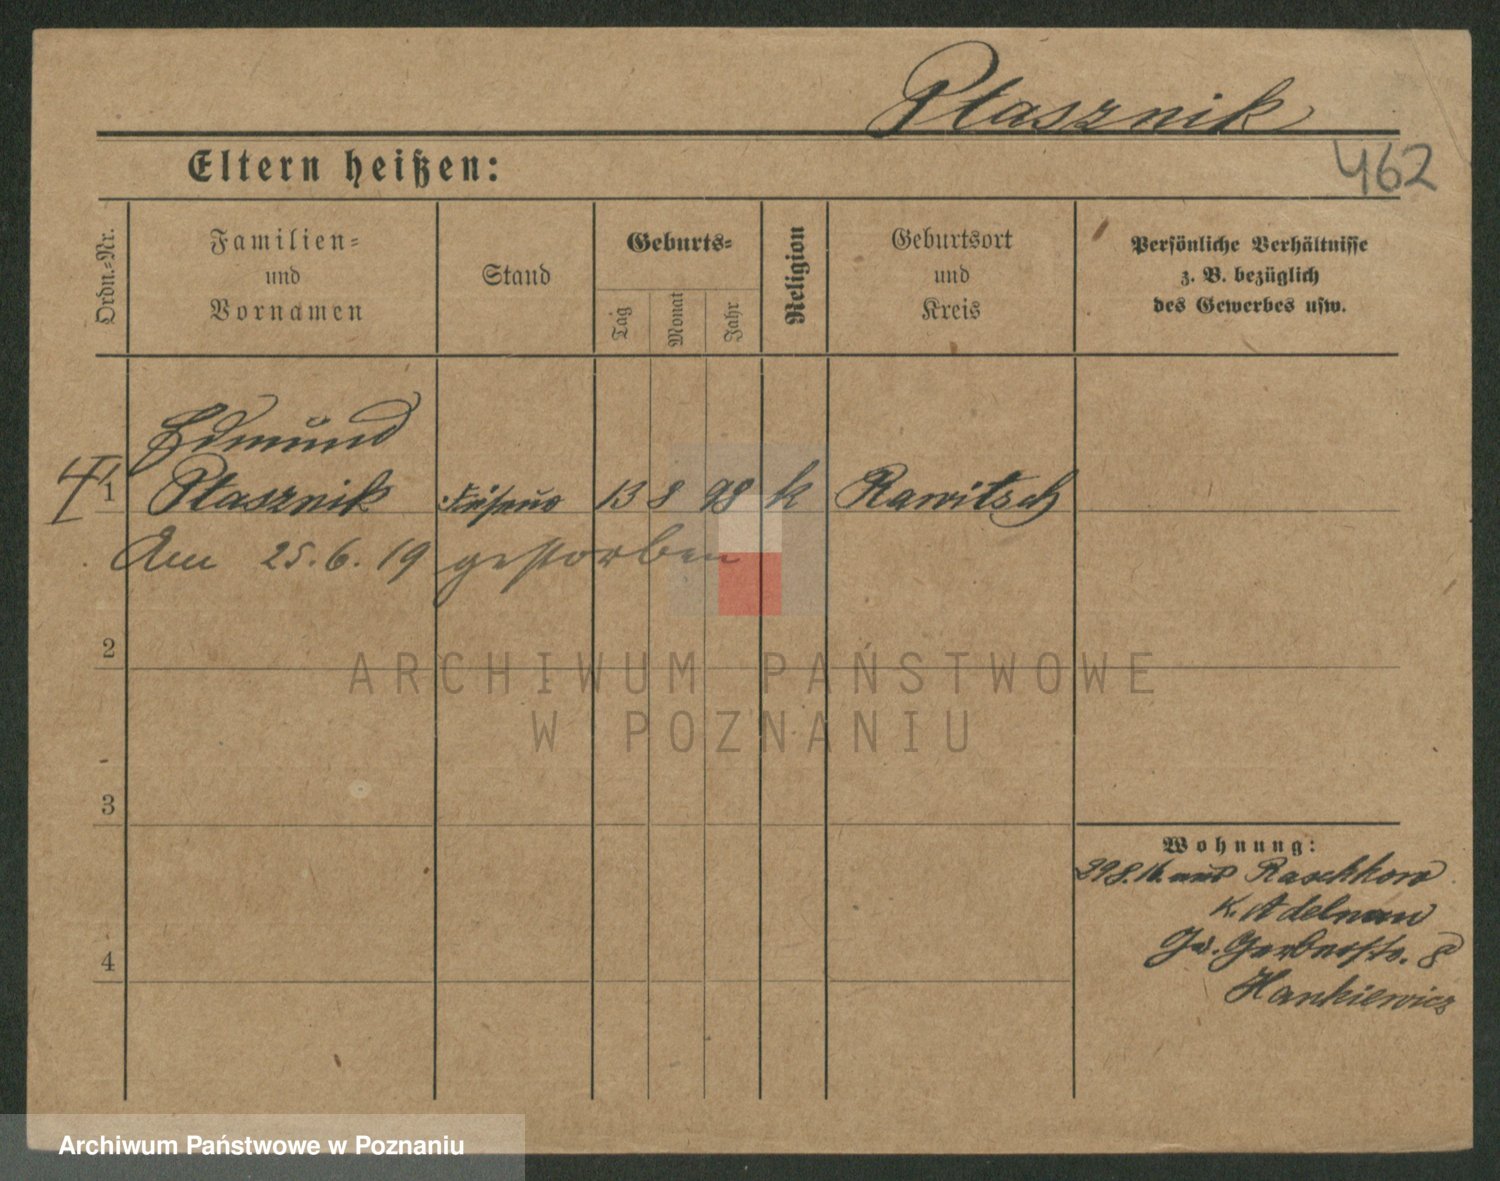 Ptasznik
462
Eltern heißen:
Ordn.-Nr.
Familien-
und
Vornamen
Stand
Geburts-
Tag
Monat
Jahr
Religion
Geburtsort
und
Kreis
Persönliche Verhältnisse
z. B. bezüglich
des Gewerbes usw.
Edmund
1 Ptasznik 13 8 98 k Rawitsch
Am 25.6.19 gestorben
2
ARCHIWUM PAŃSTWOWE
W POZNANIU
3
Wohnung:
29.8.16. aus Raschkow
K. Adelnau
Gerberstr. 8
Hankiewicz
4
Archiwum Państwowe w Poznaniu